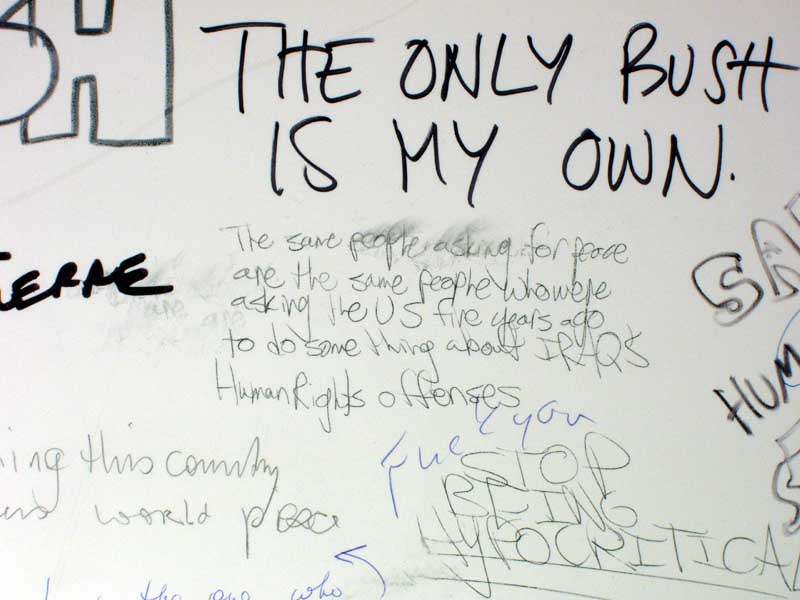 SH
THE ONLY BUSH
IS MY OWN.
The same people asking for peace
are the same people who were
asking the US five years ago
to do something about IRAQ'S
Human Rights offenses
fuck you
STOP
BEING
HYPOCRITICAL
ing this country
world peace
the one who
HUM